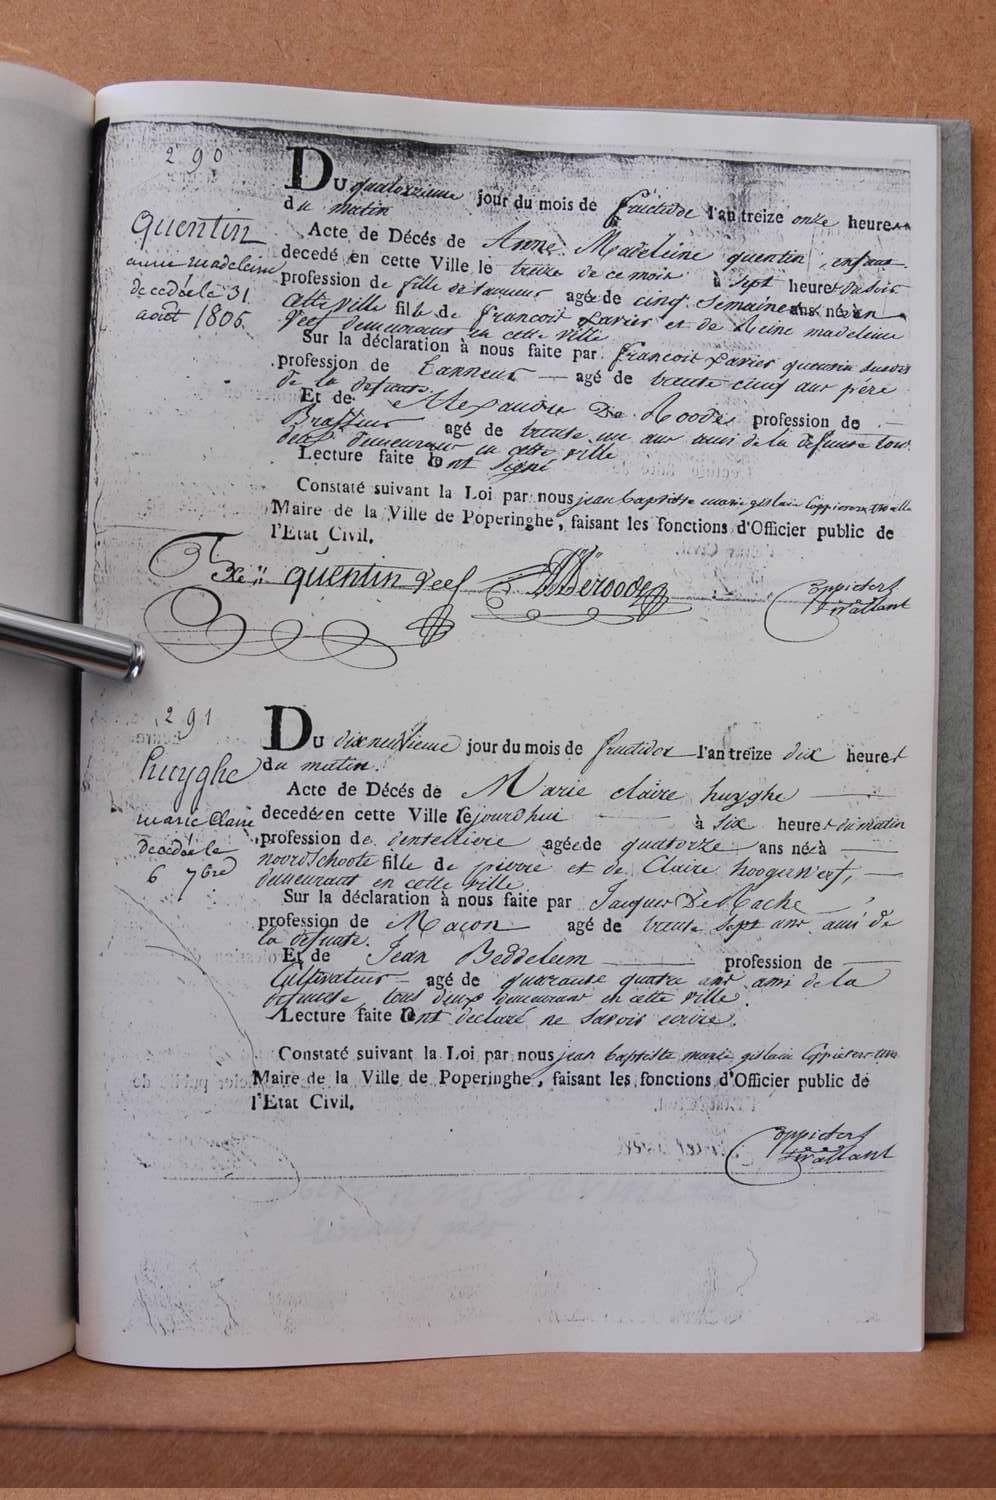 290
Quentin
anne madeleine
decedée le 31
août 1805.
Du quatorzieme jour du mois de fructidor l'an treize onze heures
du matin
Acte de Décés de Anne Madeleine quentin, enfant
decedé en cette Ville le treize de ce mois à sept heures du soir
profession de fille de tanneur agée de cinq semaines ans né en
cette ville fille de francois Xavier et de Reine madeleine
Veef demeurant en cette ville
Sur la déclaration à nous faite par francois Xavier quentin susdit
profession de tanneur agé de trente cinq ans père
de la defunte.
Et de Alexandre De Roode profession de
Brasseur agé de trente un ans ami de la defunte tous
deux demeurant en cette ville
Lecture faite ont signé
Constaté suivant la Loi par nous jean baptiste marie gislain Coppieters
Maire de la Ville de Poperinghe, faisant les fonctions d'Officier public de
l'Etat Civil.
quentin Veef
Deroode
Coppieters
t'wallant
291
huyghe
marie Claire
decedée le
6 7bre
Du dixneuvieme jour du mois de fructidor l'an treize dix heures
du matin.
Acte de Décés de Marie claire huyghe
decedé en cette Ville le jourdhui à six heures du matin
profession de dentelliere agée de quatorze ans né à
noordschoote fille de pierre et de Claire hoogerwerf,
demeurant en cette ville.
Sur la déclaration à nous faite par Jacques De Rache
profession de Maçon agé de trente sept ans ami de
la defunte.
Et de Jean Beddeleem profession de
Cultivateur agé de quarante quatre ans ami de la
defunte tous deux demeurant en cette ville.
Lecture faite ont declaré ne savoir ecrire.
Constaté suivant la Loi par nous jean baptiste marie gislain Coppieters
Maire de la Ville de Poperinghe, faisant les fonctions d'Officier public de
l'Etat Civil.
Coppieters
t'wallant